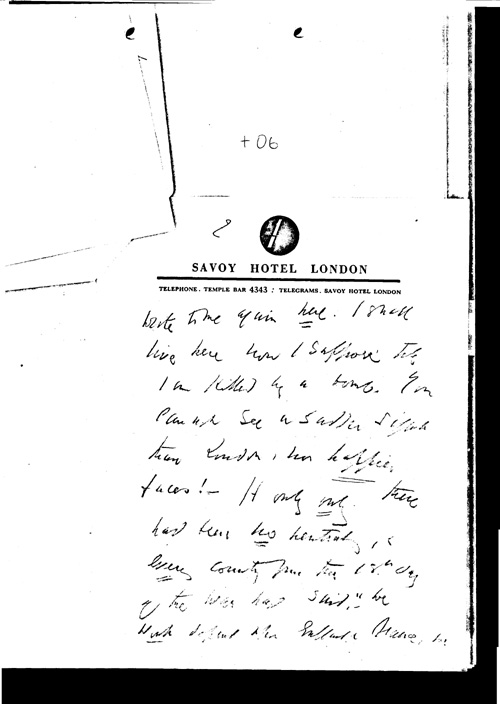 + 06
2
SAVOY HOTEL LONDON
TELEPHONE. TEMPLE BAR 4343 : TELEGRAMS. SAVOY HOTEL LONDON
wrote to me again here. I shall
live here now I suppose till
I am killed by a bomb. You
cannot see a sadder sight
than London, nor happier
faces! – If only only there
had been no neutrals, &
every country from the 1st day
of the War had said, "we
must defend